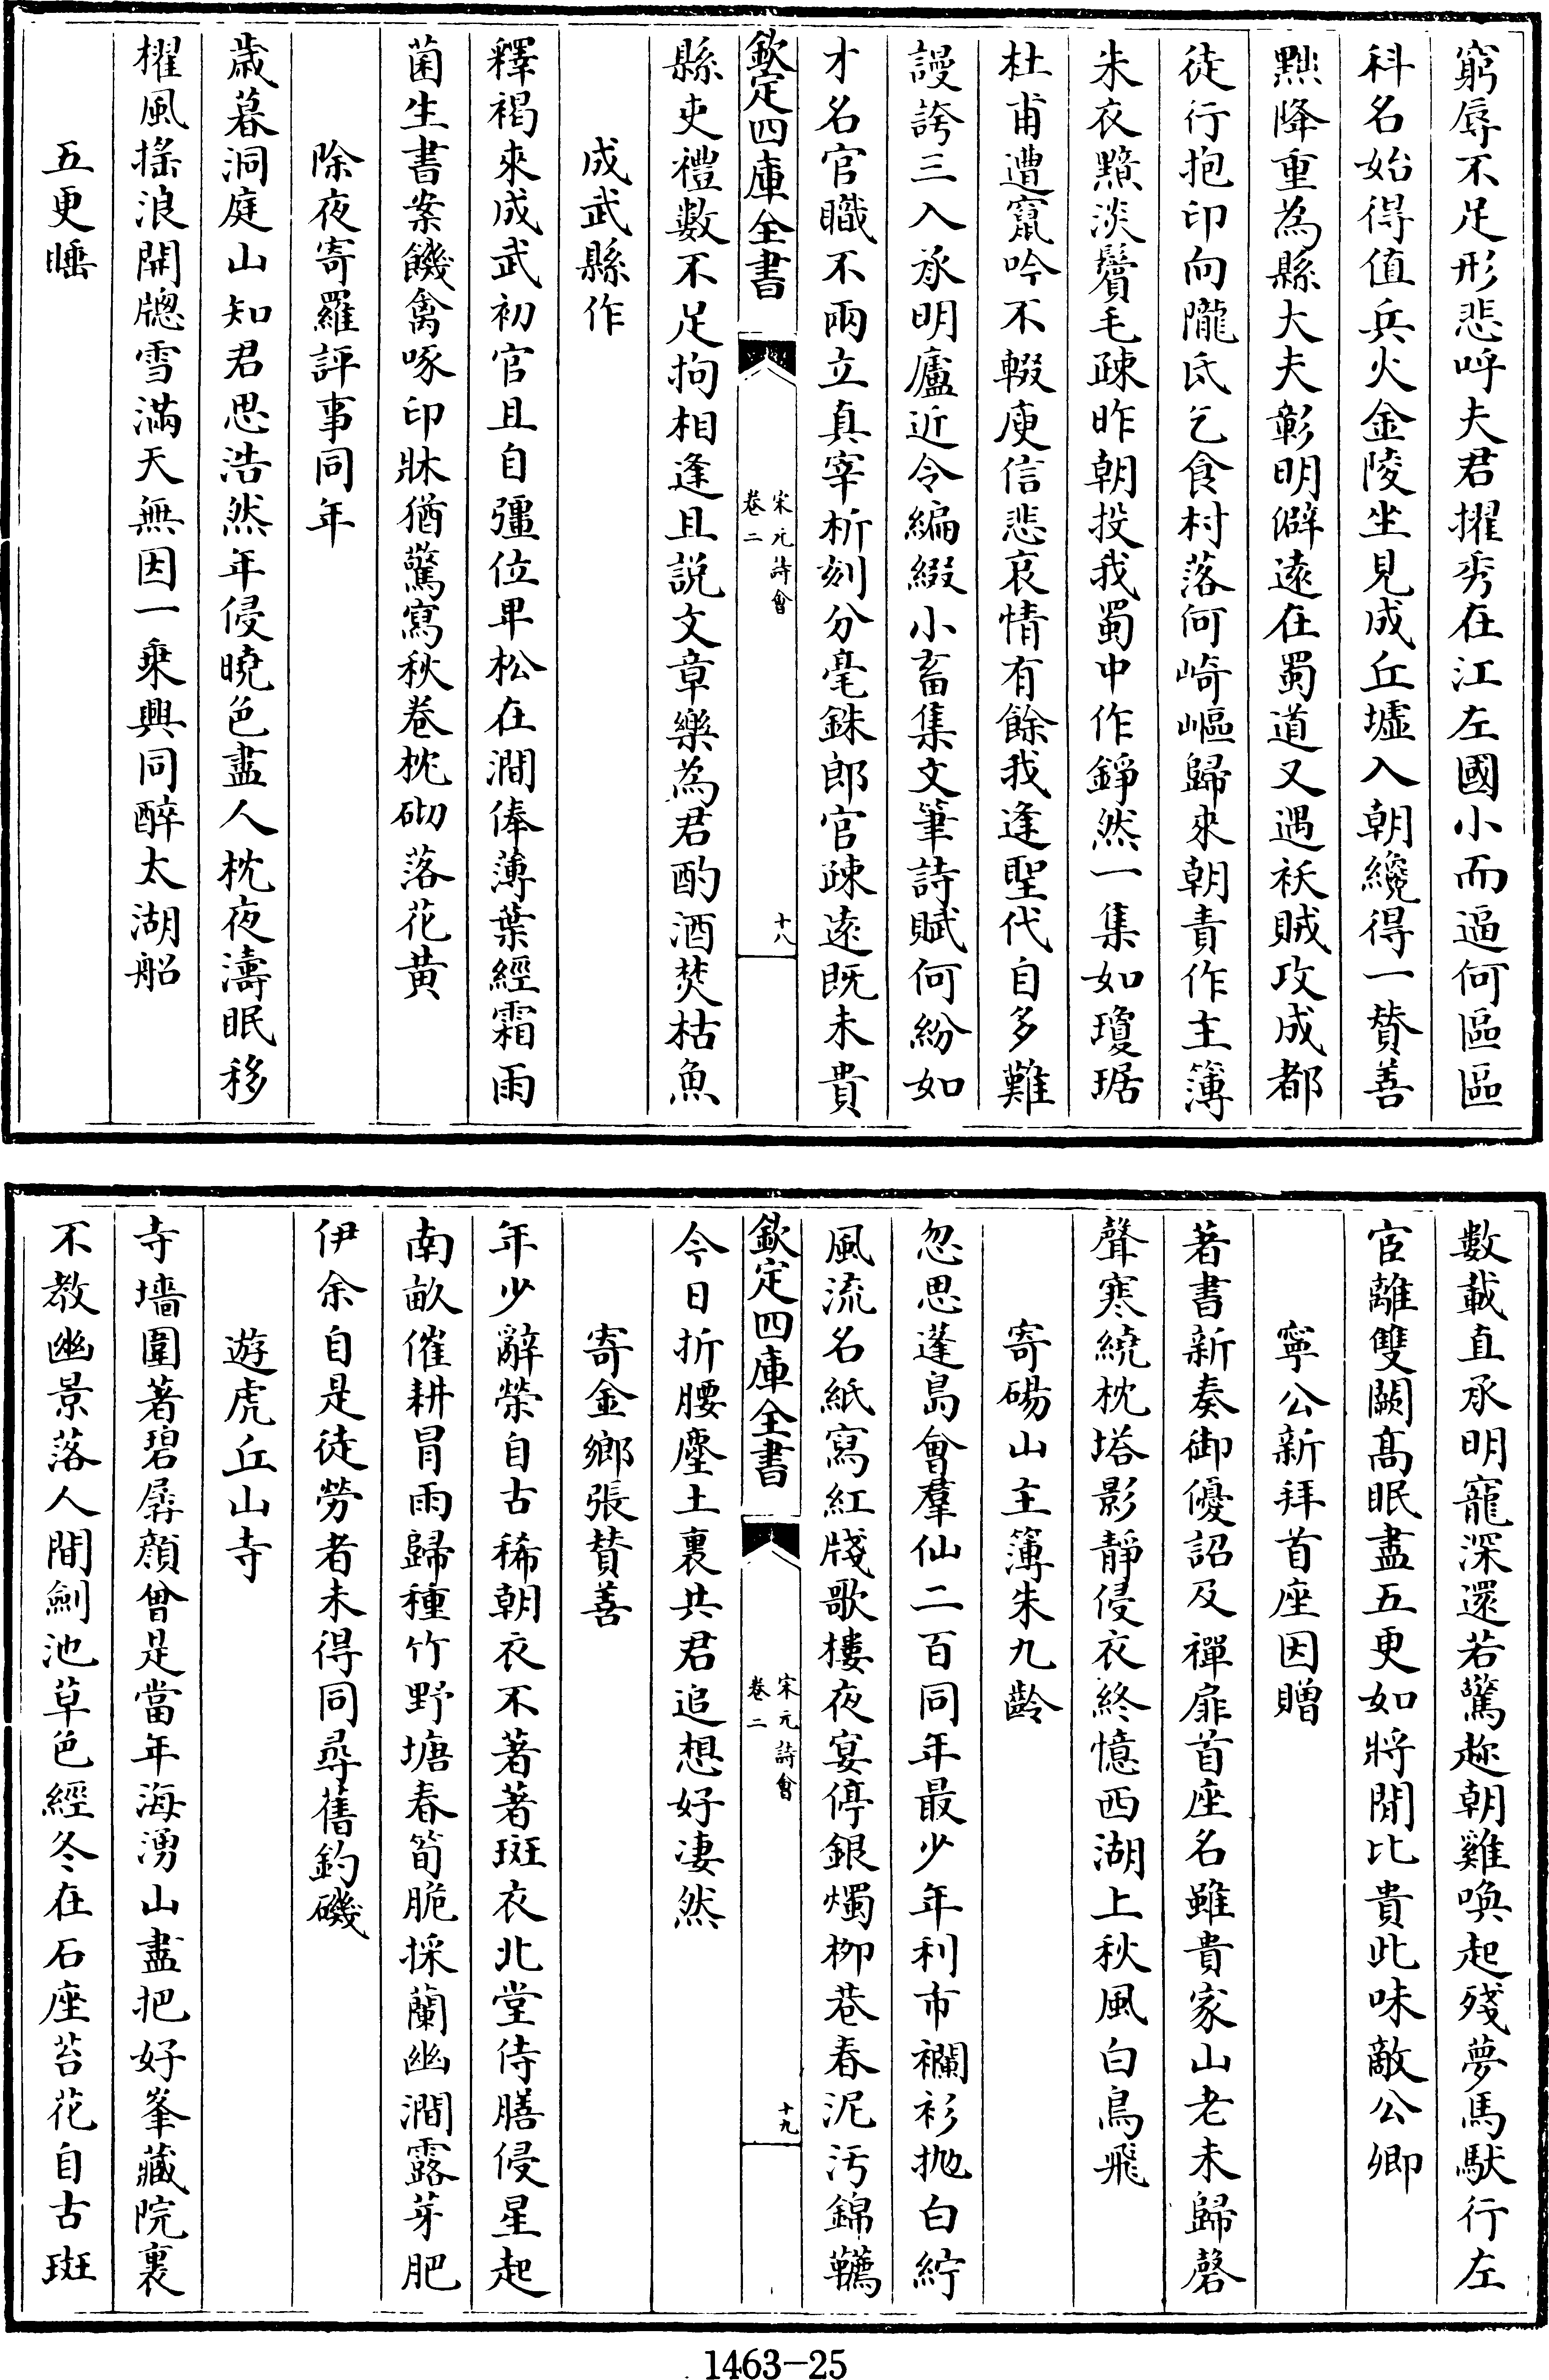 窮辱不足形悲呼夫君擢秀在江左國小而逼何區區
科名始得值兵火金陵坐見成丘墟入朝纔得一贊善
黜降重為縣大夫彰明僻遠在蜀道又遇袄賊攻成都
徒行抱印向隴氐乞食村落何崎嶇歸來朝責作主簿
朱衣黲淡鬢毛疎昨朝投我蜀中作錚然一集如瓊琚
杜甫遭竄吟不輟庾信悲哀情有餘我逢聖代自多難
謾誇三入承明廬近令編綴小畜集文筆詩賦何紛如
才名官職不兩立真宰析刻分毫銖郎官疎遠既未貴
欽定四庫全書
宋元詩會
卷二
十八
縣吏禮數不足拘相逢且説文章樂為君酌酒焚枯魚
成武縣作
釋褐來成武初官且自彊位卑松在澗俸薄葉經霜雨
菌生書案饑禽啄印牀猶驚寫秋卷枕砌落花黃
除夜寄羅評事同年
歲暮洞庭山知君思浩然年侵曉色盡人枕夜濤眠移
櫂風搖浪開牕雪滿天無因一乘興同醉太湖船
五更睡
數載直承明寵深還若驚趂朝雞喚起殘夢馬馱行左
宦離雙闕高眠盡五更如將閒比貴此味敵公卿
寧公新拜首座因贈
著書新奏御優詔及禪扉首座名雖貴家山老未歸磬
聲寒繞枕塔影靜侵衣終憶西湖上秋風白鳥飛
寄碭山主簿朱九齡
忽思蓬島會羣仙二百同年最少年利市襴衫拋白紵
風流名紙寫紅牋歌樓夜宴停銀燭栁巷春泥汚錦韉
欽定四庫全書
宋元詩會
卷二
十九
今日折腰塵土裏共君追想好凄然
寄金鄉張贊善
年少辭榮自古稀朝衣不著著斑衣北堂侍膳侵星起
南畝催耕冒雨歸種竹野塘春筍脆採蘭幽澗露芽肥
伊余自是徒勞者未得同尋舊釣磯
遊虎丘山寺
寺墻圍著碧孱顏曾是當年海湧山盡把好峯藏院裏
不教幽景落人間劍池草色經冬在石座苔花自古斑
1463-25